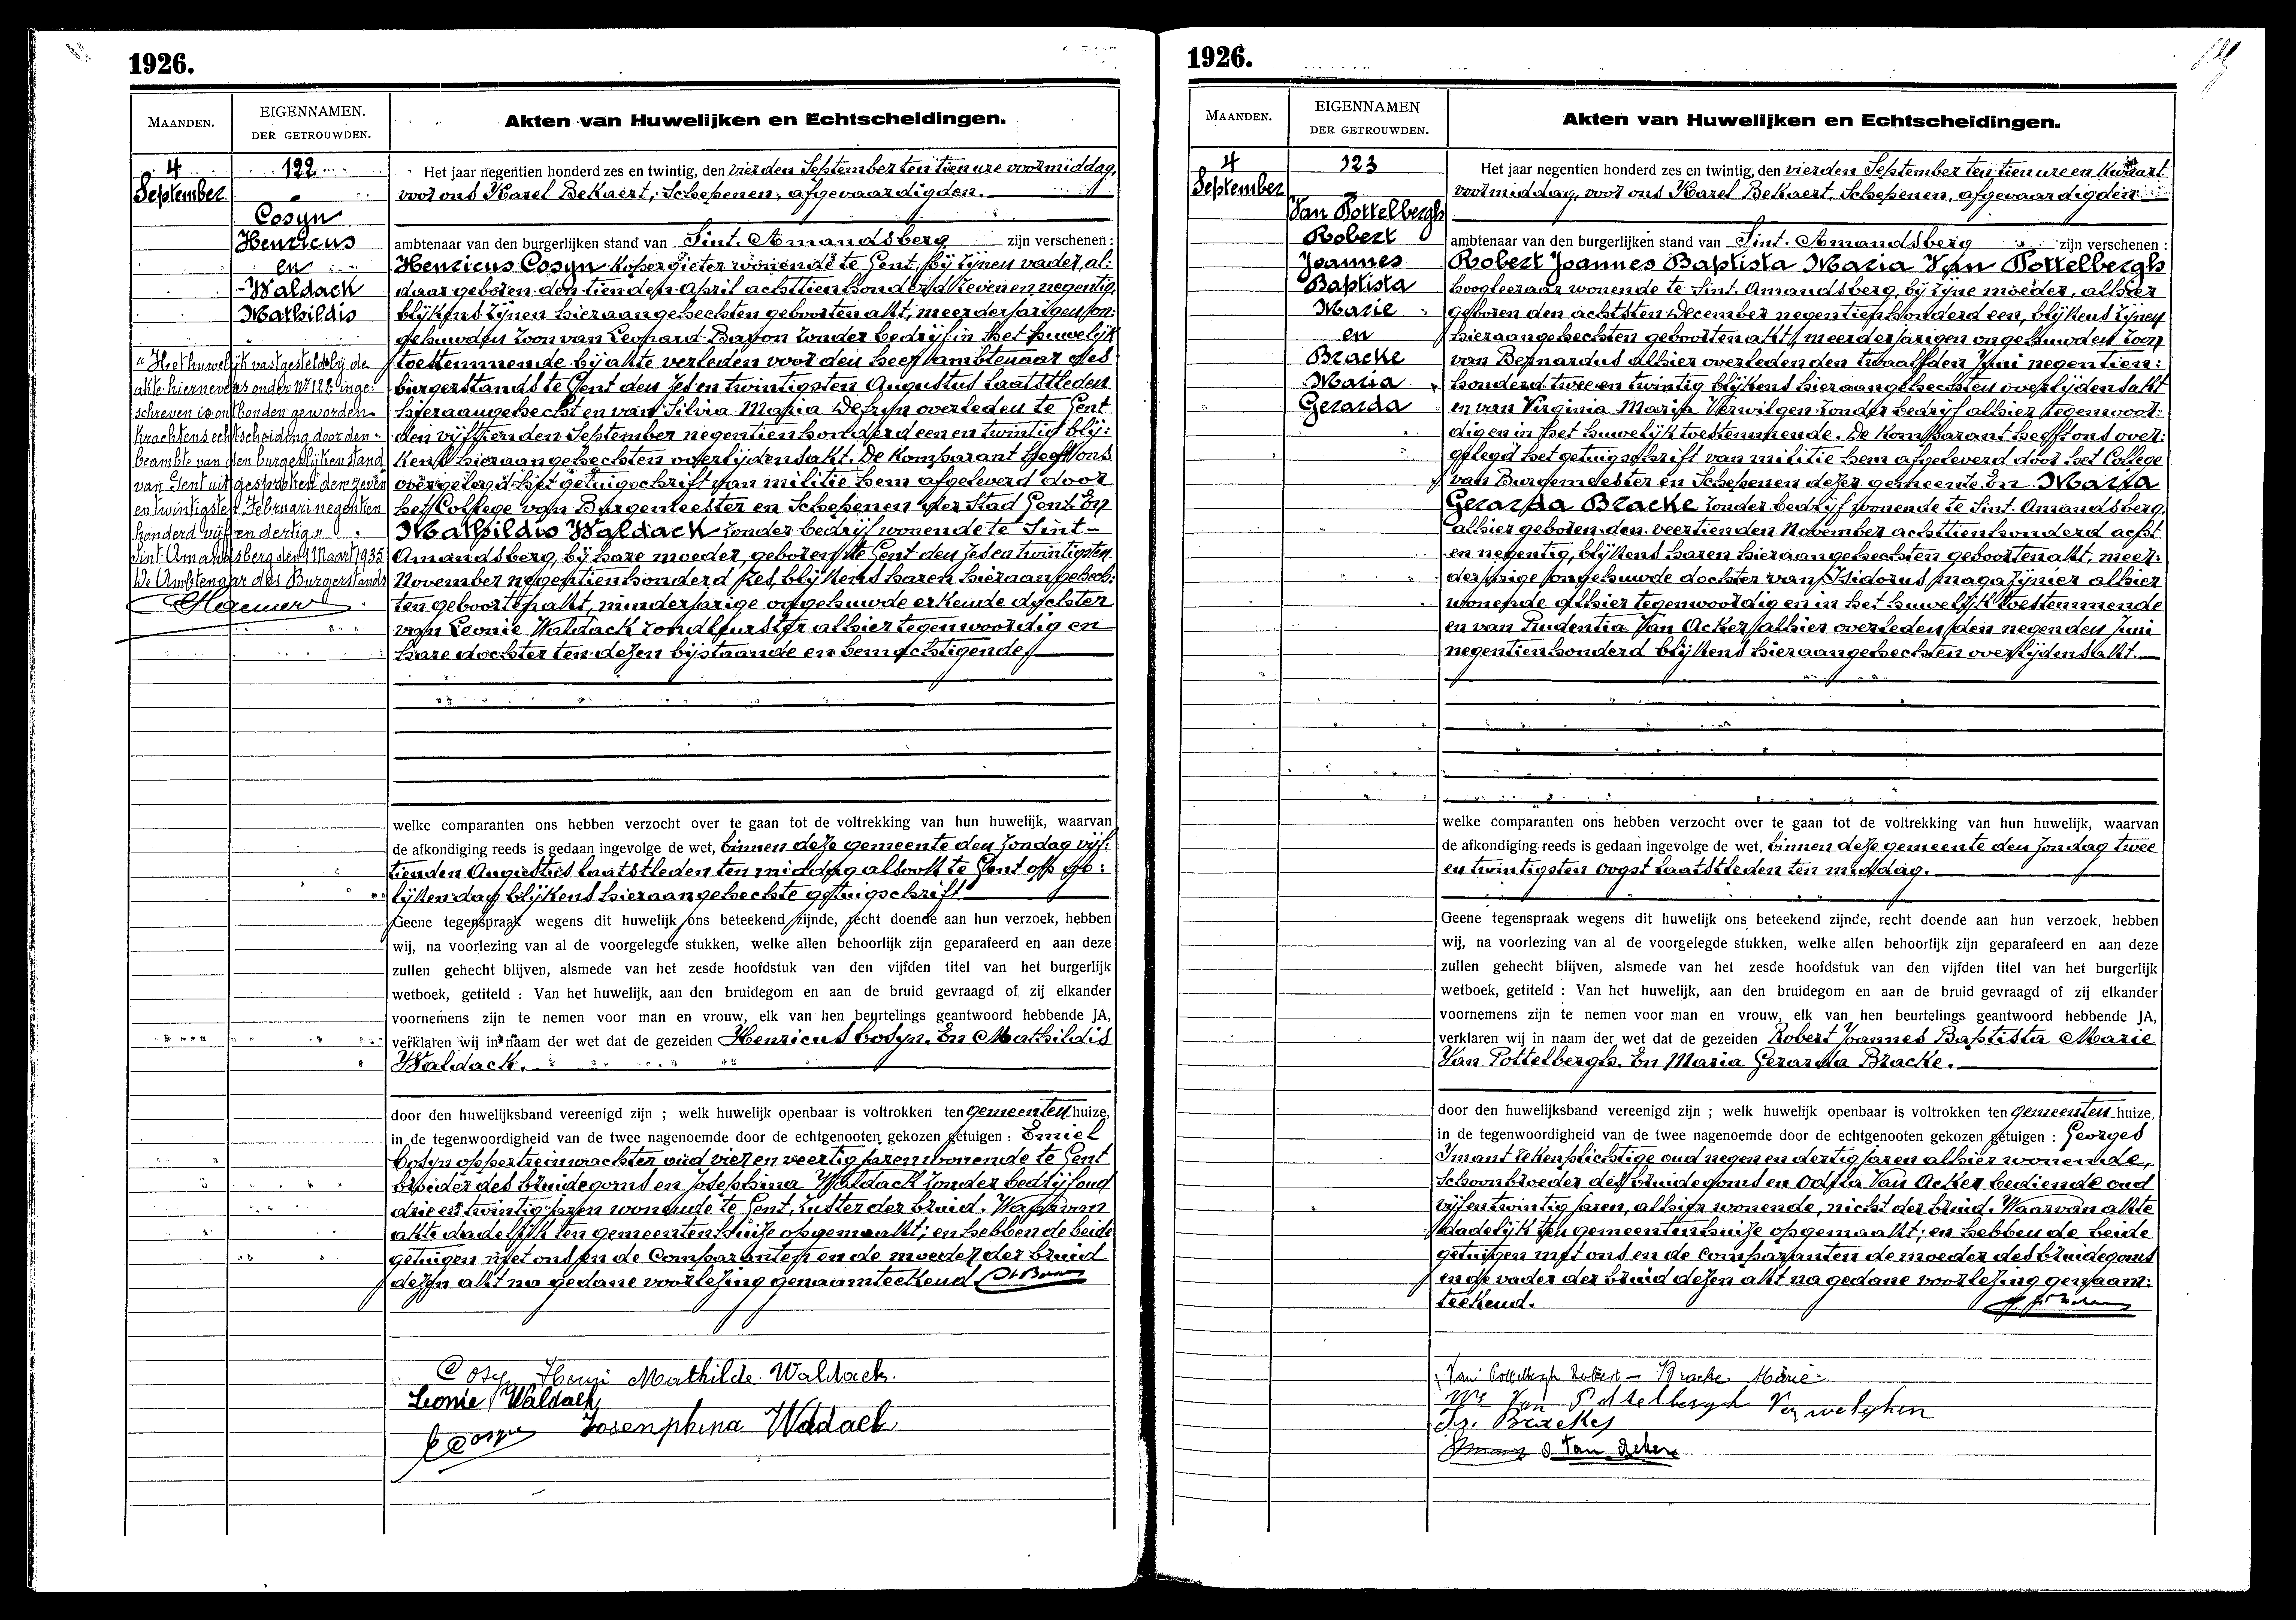 1926.
MAANDEN.
EIGENNAMEN.
DER GETROUWDEN.
Akten van Huwelijken en Echtscheidingen.
4
September
122
Cosyn
Henricus
en
Waldack
Mathildis
"Het huwelijk vastgesteld bij de
akte hiernevens onder Nr 122 inge-
schreven is ontbonden geworden
krachtens echtscheiding door den
beambte van den burgerlijken stand
van Gent uitgesproken den zeven
en twintigsten Februari negentien
honderd vijf en dertig."
Sint. Amandsberg den 9 Maart 1935
De Ambtenaar des Burgerstands
Het jaar negentien honderd zes en twintig, den vierden September ten tien ure voormiddag,
voor ons Karel Bekaert, Schepenen, afgevaardigden.
ambtenaar van den burgerlijken stand van Sint. Amandsberg zijn verschenen:
Henricus Cosyn kopergieter wonende te Gent, bij zijnen vader, al:
daar geboren den tienden April achttienhonderd zeven en negentig,
blijkens zijnen hieraangehechten geboortenakt, meerderjarigen on:
gehuwden zoon van Leonard Baron zonder bedrijf in het huwelijk
toestemmende bij akte verleden voor den heer ambtenaar des
burgerstands te Gent den zes en twintigsten Augustus laatstleden
hieraangehecht en van Silvia Maria Defryn overleden te Gent
den vijftienden September negentienhonderd een en twintig blij:
kens hieraangehechten overlijdensakt. De komparant heeft ons
overgelegd het getuigschrift van militie hem afgeleverd door
het College van Burgemeester en Schepenen der Stad Gent. En
Mathildis Waldack zonder bedrijf wonende te Sint-
Amandsberg, bij hare moeder, geboren te Gent den zes en twintigsten
November negentienhonderd zes, blijkens haren hieraangehech:
ten geboortenakt, minderjarige ongehuwde erkende dochter
van Leonie Waldack rondleurster alhier tegenwoordig en
hare dochter ten dezen bijstaande en bemachtigende.
welke comparanten ons hebben verzocht over te gaan tot de voltrekking van hun huwelijk, waarvan
de afkondiging reeds is gedaan ingevolge de wet, binnen deze gemeente den zondag vijf:
tienden Augustus laatstleden ten middag alsook te Gent op ge:
lijken dag blijkens hieraangehechte getuigschrift.
Geene tegenspraak wegens dit huwelijk ons beteekend zijnde, recht doende aan hun verzoek, hebben
wij, na voorlezing van al de voorgelegde stukken, welke allen behoorlijk zijn geparafeerd en aan deze
zullen gehecht blijven, alsmede van het zesde hoofdstuk van den vijfden titel van het burgerlijk
wetboek, getiteld : Van het huwelijk, aan den bruidegom en aan de bruid gevraagd of zij elkander
voornemens zijn te nemen voor man en vrouw, elk van hen beurtelings geantwoord hebbende JA,
verklaren wij in naam der wet dat de gezeiden Henricus Cosyn. En Mathildis
Waldack.
door den huwelijksband vereenigd zijn ; welk huwelijk openbaar is voltrokken ten gemeentenhuize,
in de tegenwoordigheid van de twee nagenoemde door de echtgenooten gekozen getuigen : Emiel
Cosyn oppertreinwachter oud vier en veertig jaren wonende te Gent
broeder des bruidegoms en Josephina Waldack zonder bedrijf oud
drie en twintig jaren wonende te Gent, zuster der bruid. Waarvan
akte dadelijk ten gemeentenhuize opgemaakt; en hebben de beide
getuigen met ons en de Comparanten en de moeder der bruid
dezen akt na gedane voorlezing genaamteekend.
Cosyn Henri Mathilde Waldack.
Leonie Waldack
E Cosyn Josenphina Waldack
1926.
MAANDEN.
EIGENNAMEN
DER GETROUWDEN.
Akten van Huwelijken en Echtscheidingen.
4
September
123
Van Pottelbergh
Robert
Joannes
Baptista
Marie
en
Bracke
Maria
Gerarda
Het jaar negentien honderd zes en twintig, den vierden September ten tien ure en kwaart
voormiddag, voor ons Karel Bekaert, Schepenen, afgevaardigden
ambtenaar van den burgerlijken stand van Sint. Amandsberg zijn verschenen :
Robert Joannes Baptista Maria Van Pottelbergh
hoogleeraar wonende te Sint. Amandsberg, bij zijne moeder, alhier
geboren den achtsten December negentienhonderd een, blijkens zijnen
hieraangehechten geboortenakt, meerderjarigen ongehuwden zoon
van Bernardus alhier overleden den twaalfden Juni negentien:
honderd twee en twintig blijkens hieraangehechten overlijdensakt
en van Virginia Maria Verwilgen zonder bedrijf alhier tegenwoor:
dig en in het huwelijk toestemmende. De komparant heeft ons over:
gelegd het getuigschrift van militie hem afgeleverd door het College
van Burgemeester en Schepenen dezer gemeente. En Maria
Gerarda Bracke zonder bedrijf wonende te Sint. Amandsberg,
alhier geboren den veertienden November achttienhonderd acht
en negentig, blijkens haren hieraangehechten geboortenakt, meer:
derjarige ongehuwde dochter van Isidorus magazijnier alhier
wonende alhier tegenwoordig en in het huwelijk toestemmende
en van Prudentia Van Acker alhier overleden den negenden Juni
negentienhonderd blijkens hieraangehechten overlijdensakt.
welke comparanten ons hebben verzocht over te gaan tot de voltrekking van hun huwelijk, waarvan
de afkondiging reeds is gedaan ingevolge de wet, binnen deze gemeente den zondag twee
en twintigsten Oogst laatstleden ten middag.
Geene tegenspraak wegens dit huwelijk ons beteekend zijnde, recht doende aan hun verzoek, hebben
wij, na voorlezing van al de voorgelegde stukken, welke allen behoorlijk zijn geparafeerd en aan deze
zullen gehecht blijven, alsmede van het zesde hoofdstuk van den vijfden titel van het burgerlijk
wetboek, getiteld : Van het huwelijk, aan den bruidegom en aan de bruid gevraagd of zij elkander
voornemens zijn te nemen voor man en vrouw, elk van hen beurtelings geantwoord hebbende JA,
verklaren wij in naam der wet dat de gezeiden Robert Joannes Baptista Marie
Van Pottelbergh. En Maria Gerarda Bracke.
door den huwelijksband vereenigd zijn ; welk huwelijk openbaar is voltrokken ten gemeentenhuize,
in de tegenwoordigheid van de twee nagenoemde door de echtgenooten gekozen getuigen : Georges
Imant tekenplichtige oud negen en dertig jaren alhier wonende,
schoonbroeder des bruidegoms en Odila Van Acker bediende oud
vijf en twintig jaren, alhier wonende, nicht der bruid. Waarvan akte
dadelijk ten gemeentenhuize opgemaakt; en hebben de beide
getuigen met ons en de Comparanten de moeder des bruidegoms
en de vader der bruid dezen akt na gedane voorlezing genaam:
teekend.
Van Pottelbergh Robert - Bracke Marie
We Van Pottelbergh Verwelghen
Is. Bracke
Imant O. Van Acker